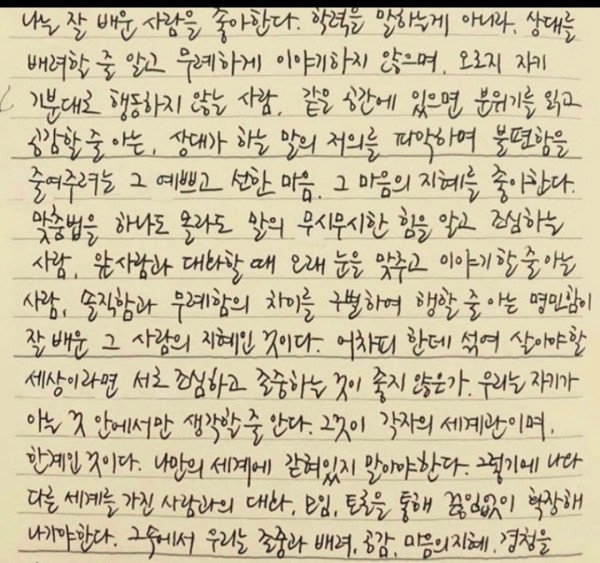 나는 잘 배운 사람을 좋아한다. 학력을 말하는게 아니라, 상대를
배려할 줄 알고 무례하게 이야기하지 않으며, 오로지 자기
기분대로 행동하지 않는 사람. 같은 공간에 있으면 분위기를 읽고
공감할 줄 아는, 상대가 하는 말의 저의를 파악하며 불편함을
줄여주려는 그 예쁘고 선한 마음. 그 마음의 지혜를 좋아한다.
맞춤법을 하나도 몰라도 말의 무시무시한 힘을 알고 조심하는
사람, 앞사람과 대화할 때 오래 눈을 맞추고 이야기 할 줄 아는
사람, 솔직함과 무례함의 차이를 구별하여 행할 줄 아는 명민함이
잘 배운 그 사람의 지혜인 것이다. 어차피 한데 섞여 살아야할
세상이라면 서로 조심하고 존중하는 것이 좋지 않은가. 우리는 자기가
아는 것 안에서만 생각할 줄 안다. 그것이 각자의 세계관이며,
한계인 것이다. 나만의 세계에 갇혀있지 말아야한다. 그렇기에 나와
다른 세계를 가진 사람과의 대화, 모임, 토론을 통해 끊임없이 확장해
나가야한다. 그속에서 우리는 존중과 배려, 공감, 마음의지혜, 경청을